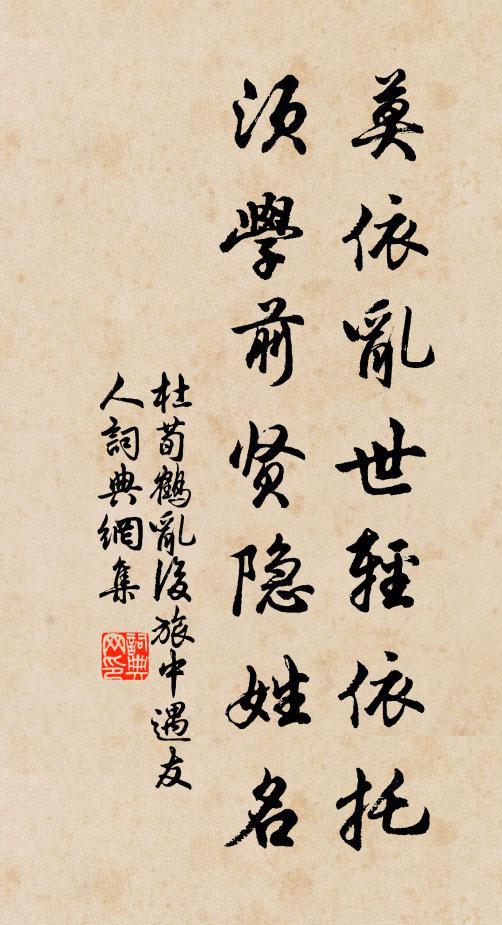 莫依亂世輕依托
須學前贤隐姓名
杜荀鶴亂後旅中遇友
人詞典網集
詞典
网印